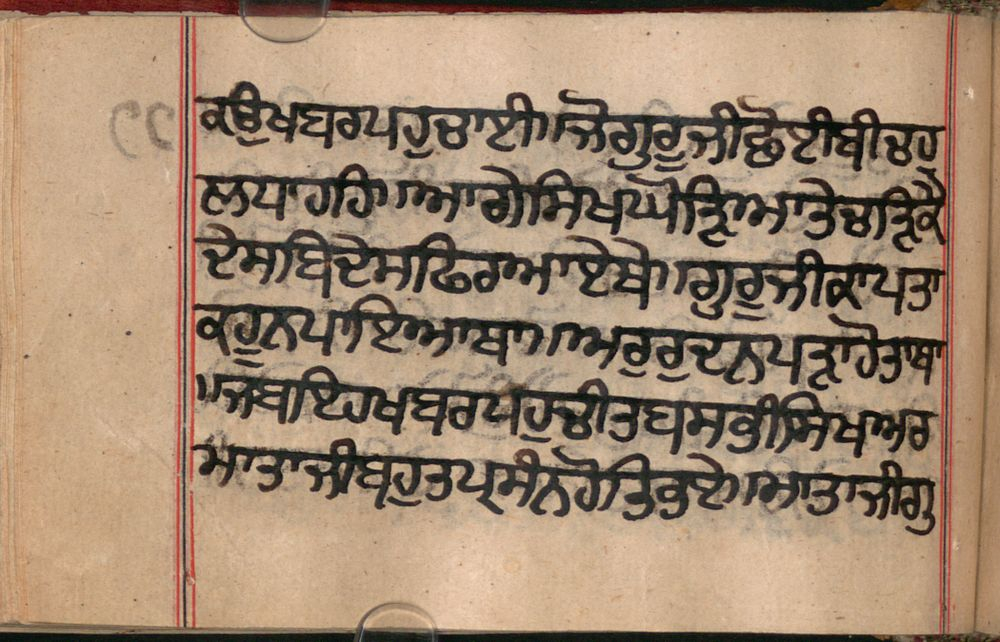 ਕਉਖਬਰਪਹੁਚਾਈ॥ਜੋਗੁਰੂਜੀਛੋਈਬੀਚਹ
ਲਪਾਹਹਿ॥ਆਗੇਸਿਖਪੋਤ੍ਰਿਆਤੇਚਤ੍ਰਿਕੈ
ਦੇਸਬਿਦੇਸਫਿਰਆਏਥੇ॥ਗੁਰੂਜੀਕਾਪਤਾ
ਕਹੂਨਪਾਇਆਥਾ॥ਅਰੁਰੁਦਨਪਤ੍ਰਾਹੋਤਾਥਾ
॥ਜਬਇਹਖਬਰਪਹੁਚੀਤਬਸਭੀਸਿਖਅਰ
ਮਾਤਾਜੀਬਹੁਤਪ੍ਰਸੰਨਹੋਤਿਭਏ॥ਮਾਤਾਜੀਗੁ